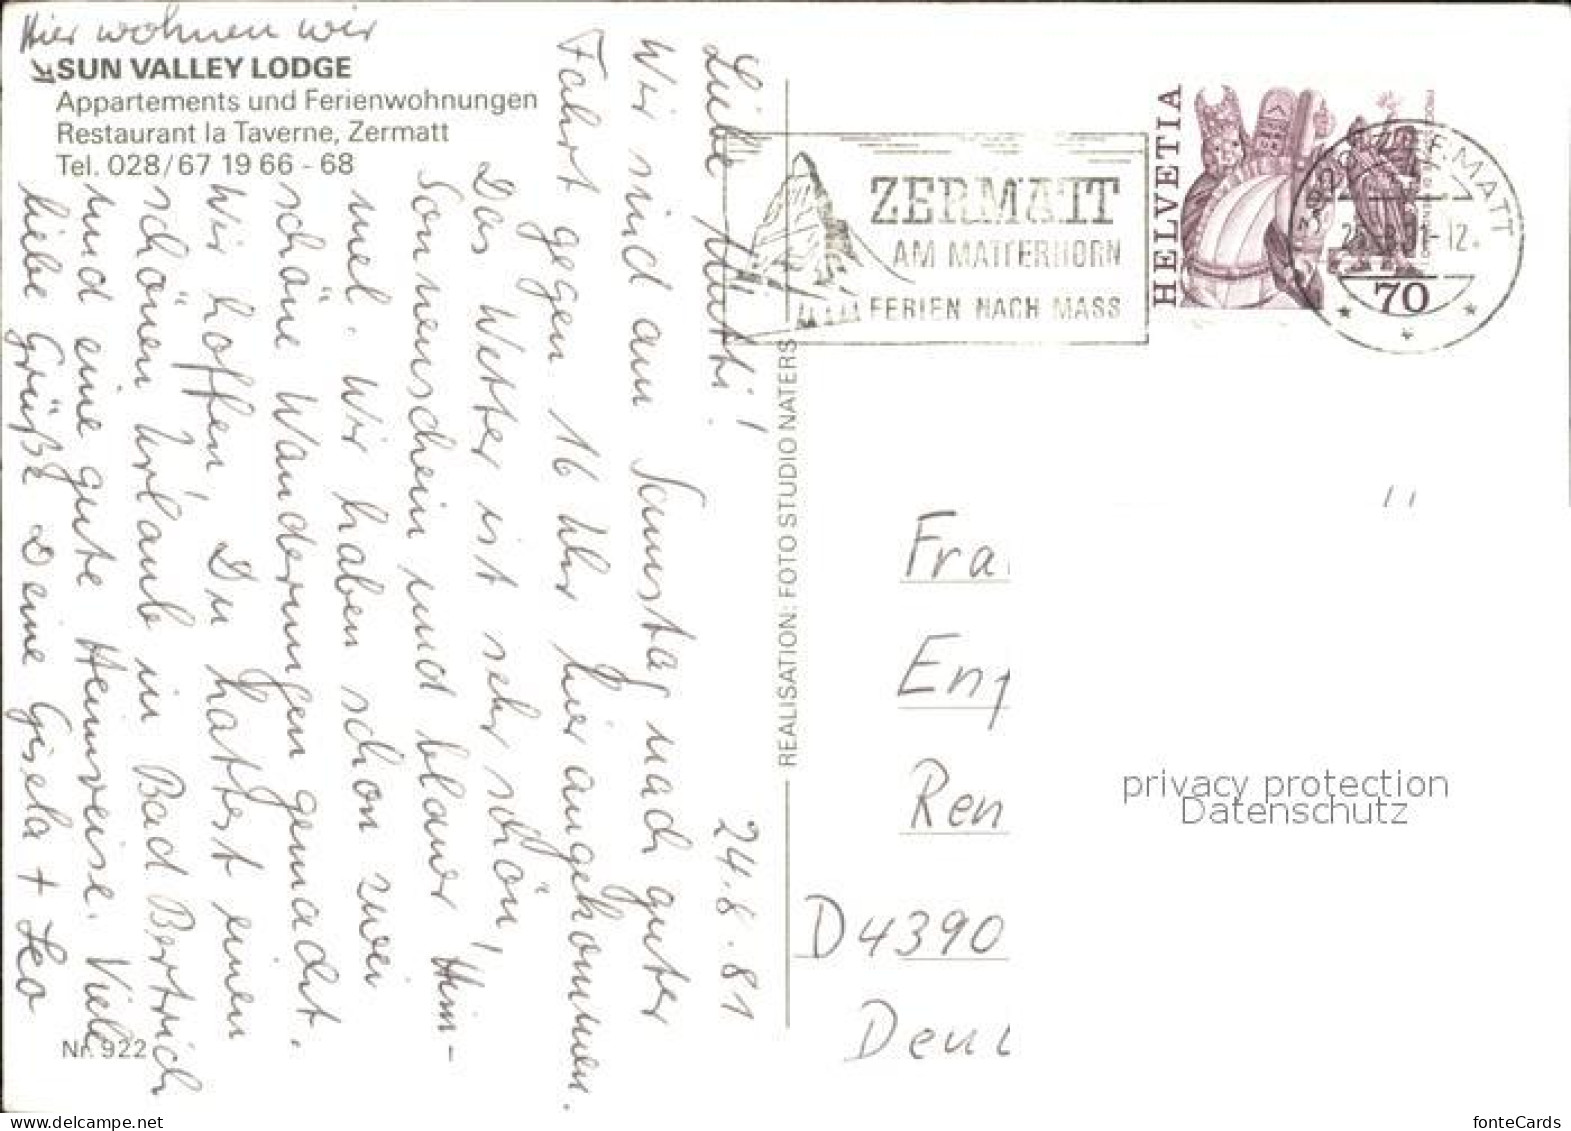 Hier wohnen wir
SUN VALLEY LODGE
Appartements und Ferienwohnungen
Restaurant la Taverne, Zermatt
Tel. 028/67 19 66 - 68
24.8.81
Liebe Mutti!
Wir sind am Samstag nach guter
Fahrt gegen 16 Uhr hier angekommen.
Das Wetter ist sehr schön,
Sonnenschein und blauer Him-
mel. Wir haben schon zwei
schöne Wanderungen gemacht.
Wir hoffen, Du hattest einen
schönen Urlaub in Bad Bertrich
und eine gute Heimreise. Viele
liebe Grüße Deine Gisela + Leo
Nr. 922
REALISATION: FOTO STUDIO NATERS
ZERMATT
AM MATTERHORN
FERIEN NACH MASS
HELVETIA
70
ZERMATT
Fra
En
Ren
D 4390
Deu
privacy protection
Datenschutz
fonteCards
www.delcampe.net